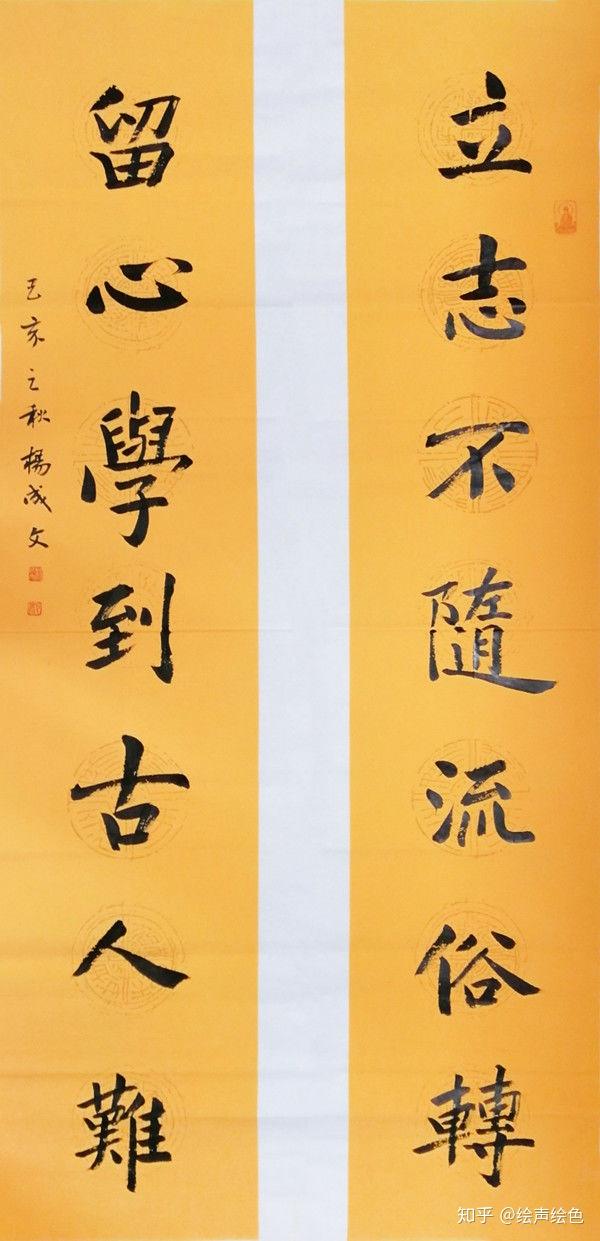 立志不隨流俗轉
留心學到古人難
己亥之秋楊成文
知乎 @绘声绘色